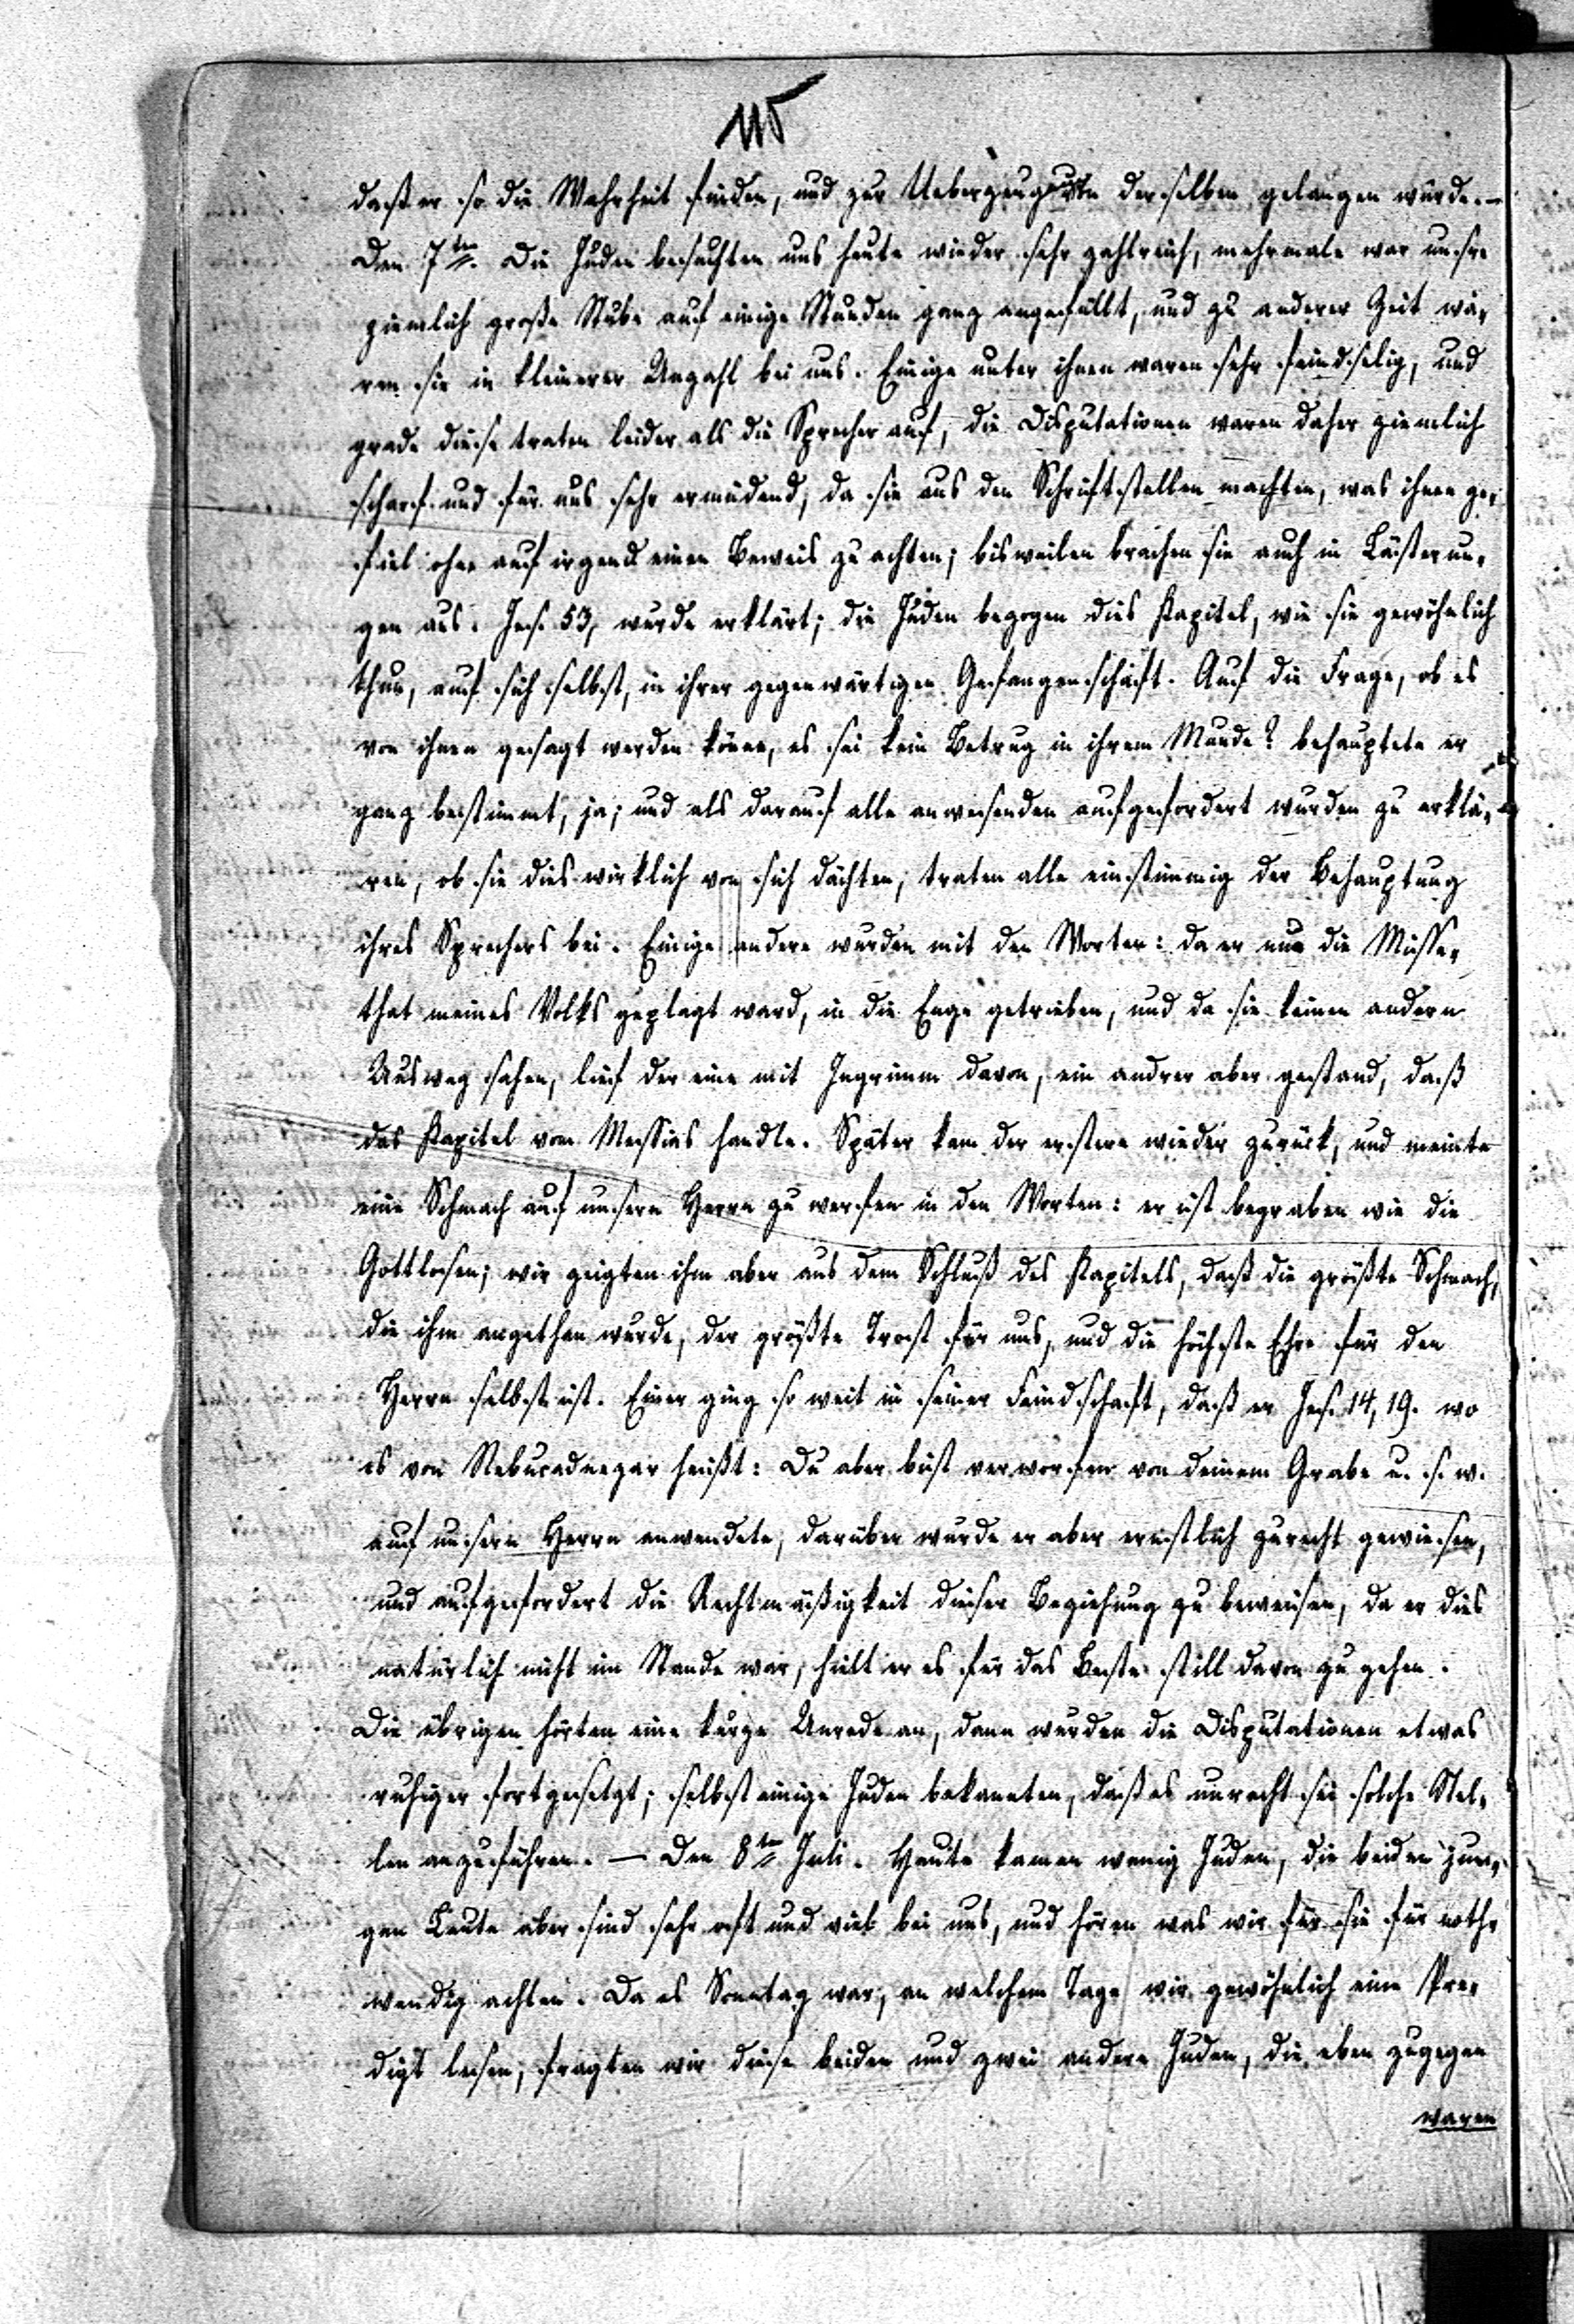 115
daß er so die Wahrheit finden, und zur Ueberzeugung von derselben gelangen würde. –
Den 7ten. Die Juden besuchten uns heute wieder sehr zahlreich, mehrmale war unsre
ziemlich große Stube auf einige Stunden ganz angefüllt, und zu anderer Zeit wa-
ren sie in kleinerer Anzahl bei uns. Einige unter ihnen waren sehr feindselig, und
grade diese traten leider als die Sprecher auf, die Disputationen waren daher ziemlich
scharf und für uns sehr ermüdend, da sie aus den Schriftstellen machten, was ihnen ge-
fiel ohne auf irgend einen Beweis zu achten; bisweilen brachen sie auch in Lästerun-
gen aus. Jes. 53, wurde erklärt; die Juden bezogen dies Kapitel, wie sie gewöhnlich
thun, auf sich selbst, in ihrer gegenwärtigen Gefangenschaft. Auf die Frage, ob es
von ihnen gesagt werden könne, es sei kein Betrug in ihrem Munde? behauptete er
ganz bestimmt, ja; und als darauf alle anwesenden aufgefordert wurden zu erklä-
ren, ob sie dies wirklich von sich dächten, traten alle einstimmig der Behauptung
ihres Sprechers bei. Einige andere wurden mit den Worten: da er um die Misse-
that meines Volks geplagt ward, in die Enge getrieben, und da sie keinen andern
Ausweg sahen, lief der eine mit Ingrimm davon, ein andrer aber gestand, daß
das Kapitel vom Messias handle. Später kam der erstere wieder zurück, und meinte
eine Schmach auf unsern Herrn zu werfen in den Worten: er ist begraben wie die
Gottlosen; wir zeigten ihm aber aus dem Schluß des Kapitels, daß die größte Schmach,
die ihm angethan wurde, der größte Trost für uns, und die höchste Ehre für den
Herrn selbst ist. Einer ging so weit in seiner Feindschaft, daß er Jes. 14, 19. wo
es von Nebucadnezar heißt: Du aber bist verworfen von deinem Grabe u. s. w.
auf unsern Herrn anwendete, darüber wurde er aber ernstlich zurecht gewiesen,
und aufgefordert die Rechtmäßigkeit dieser Beziehung zu beweisen, da er dies
natürlich nicht im Stande war, hielt er es für das Beste still davon zu gehen.
Die übrigen hörten eine kurze Anrede an, dann wurden die Disputationen etwas
ruhiger fortgesetzt; selbst einige Juden bekannten, daß es unrecht sei solche Stel-
len anzuführen. – Den 8ten Juli. Heute kamen wenig Juden, die beiden jun-
gen Leute aber sind sehr oft und viel bei uns, und hören was wir für sie für noth-
wendig achten. Da es Sonntag war, an welchem Tage wir gewöhnlich eine Pre-
digt lesen, fragten wir diese beiden und zwei andere Juden, die eben zugegen
waren